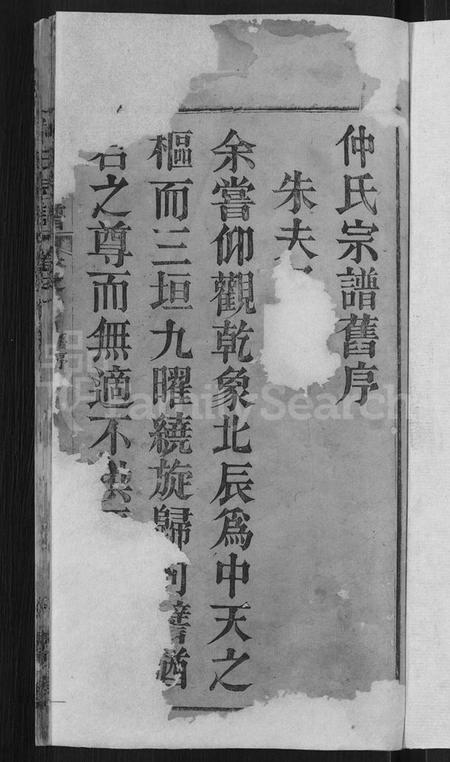 仲氏宗譜舊序
朱夫
余嘗仰觀乾象北辰為中天之
樞而三垣九曜繞旋歸向譬猶
君之尊而無適不
FamilySearch